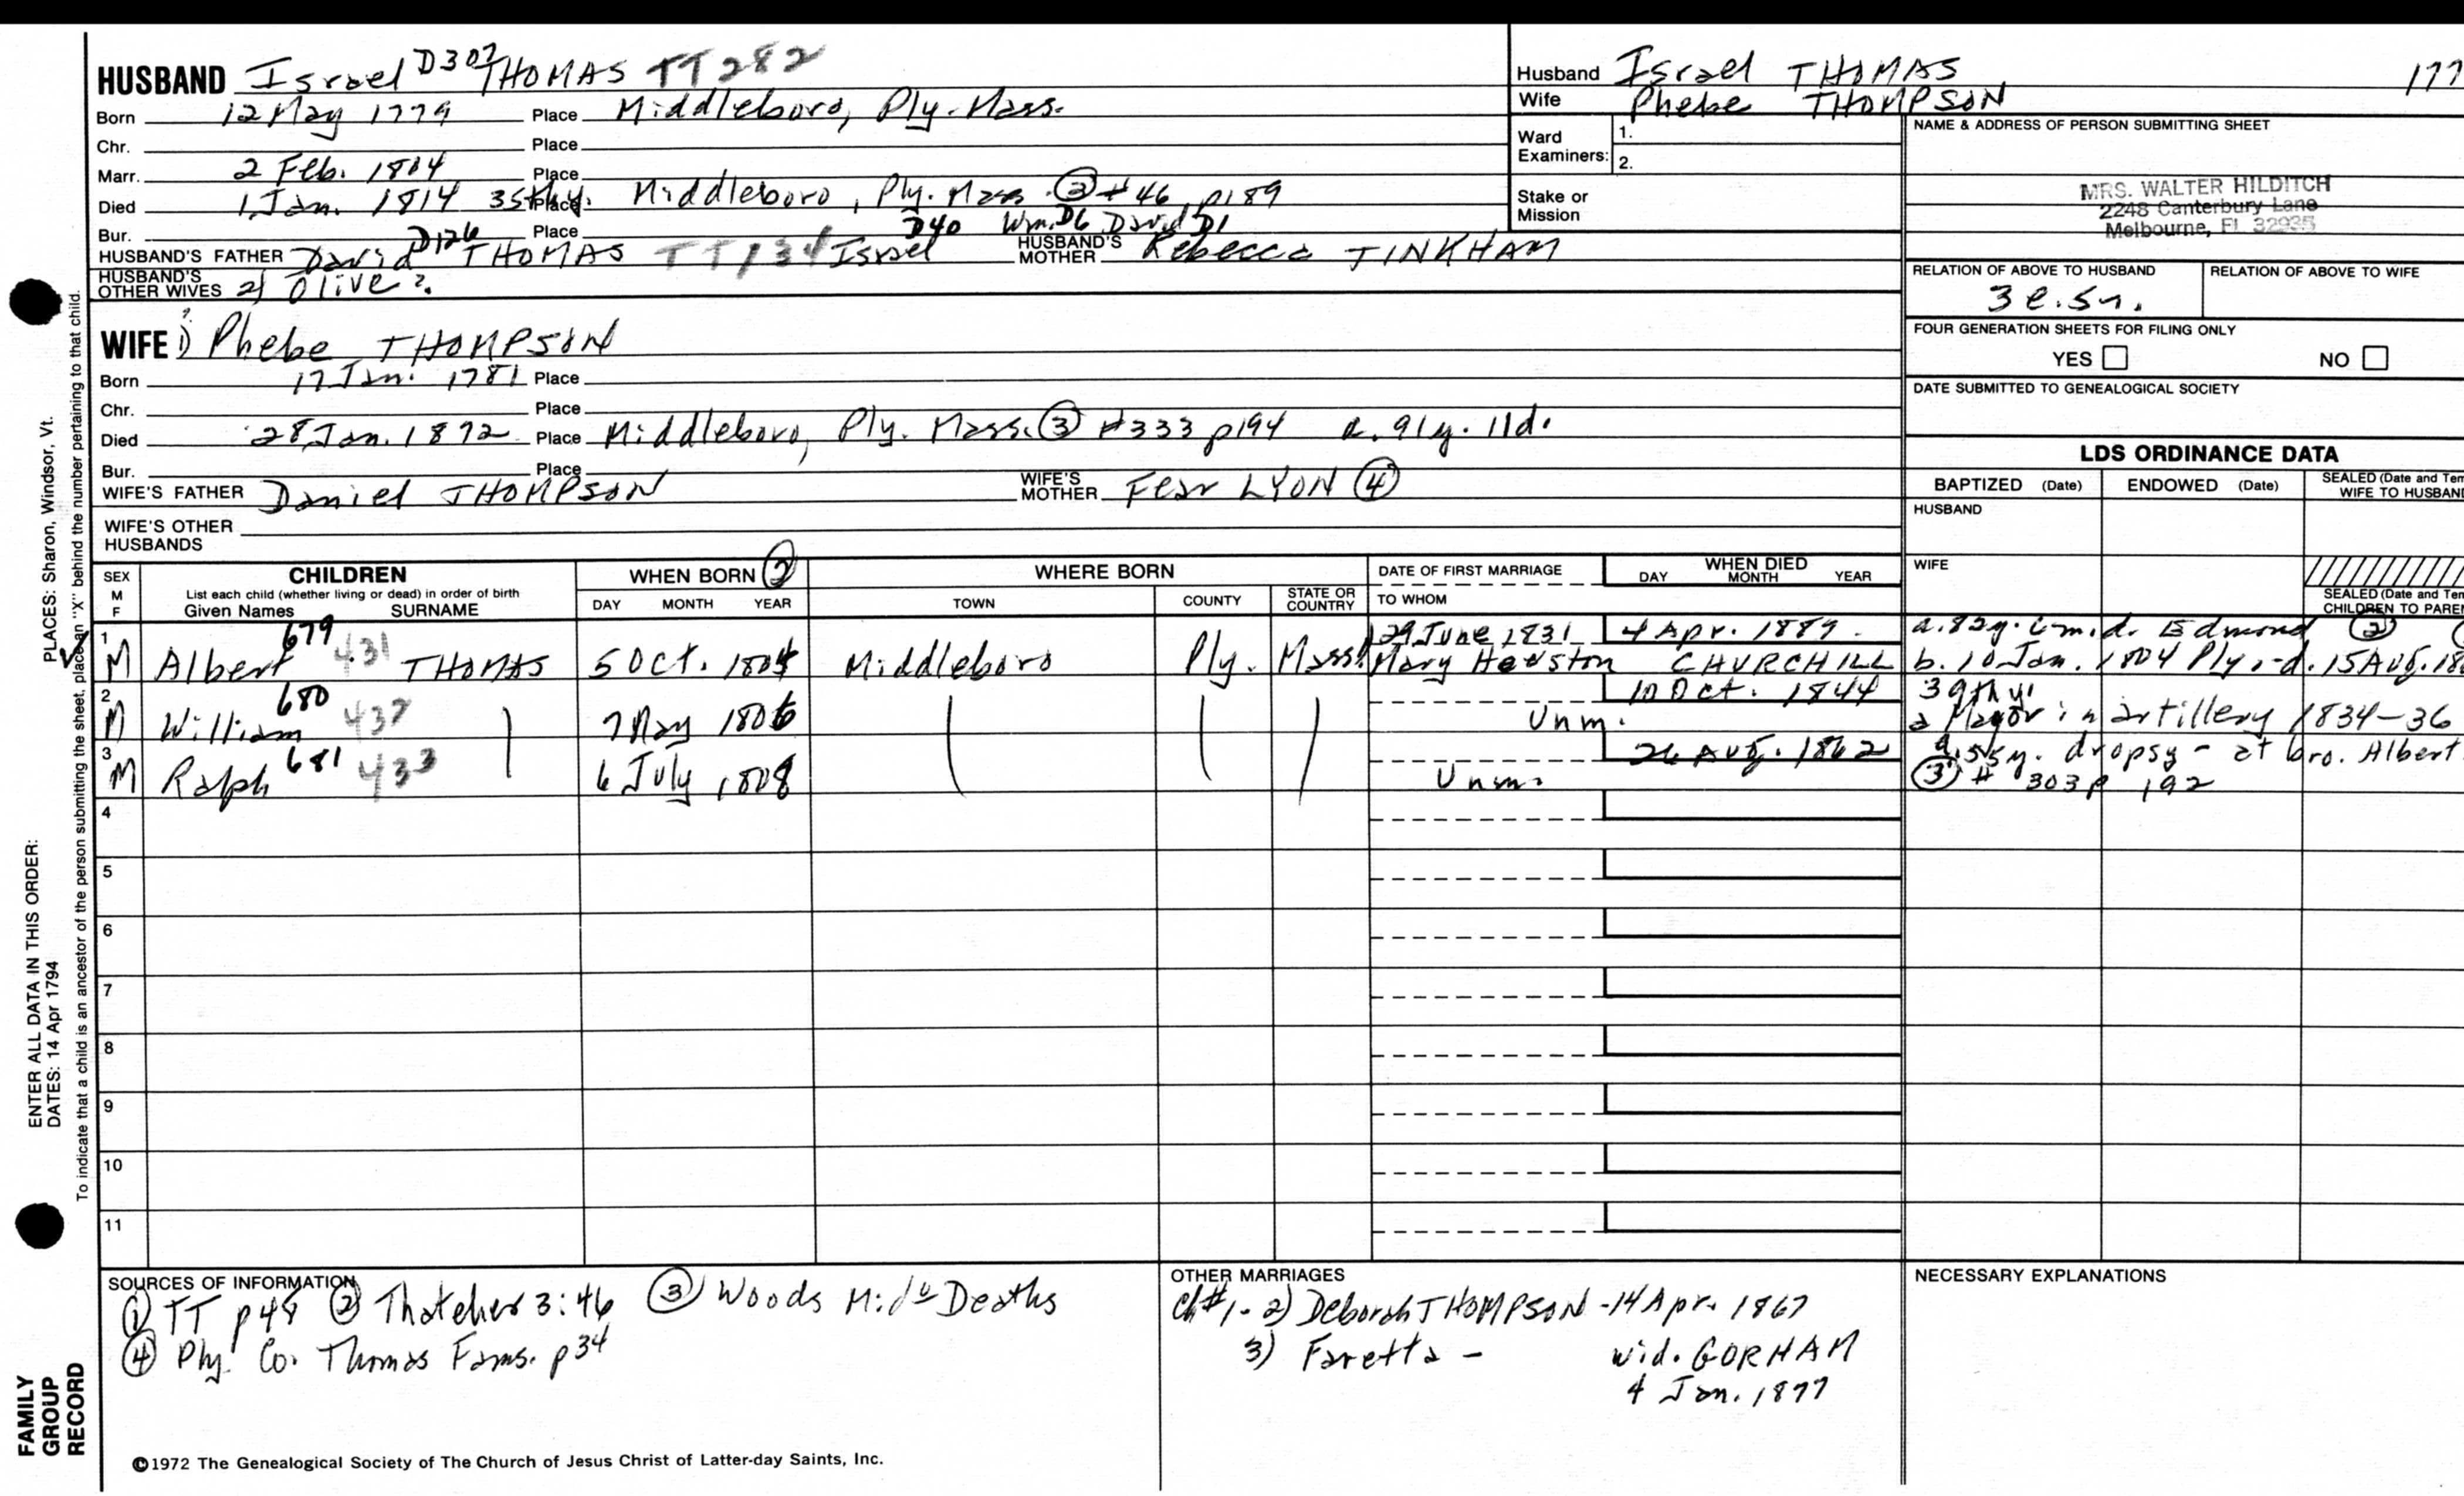 HUSBAND Israel D307 THOMAS TT282
Born 12 May 1779 Place Middleboro, Ply. Mass.
Chr. Place
Marr. 2 Feb. 1804 Place
Died 1 Jan. 1814 35th y. Place Middleboro, Ply. Mass. ③ #46 p189
Bur. Place D40 Wm. D6 David D1
HUSBAND'S FATHER David D126 THOMAS TT134 Israel HUSBAND'S MOTHER Rebecca TINKHAM
HUSBAND'S OTHER WIVES 2) Olive?
WIFE 1)? Phebe THOMPSON
Born 17 Jan. 1781 Place
Chr. Place
Died 28 Jan. 1872 Place Middleboro, Ply. Mass. ③ #333 p194 a. 91y. 11d.
Bur. Place
WIFE'S FATHER Daniel THOMPSON WIFE'S MOTHER Fear LYON ④
WIFE'S OTHER HUSBANDS
Husband Israel THOMAS 177
Wife Phebe THOMPSON
Ward Examiners: 1.
2.
Stake or Mission
NAME & ADDRESS OF PERSON SUBMITTING SHEET
MRS. WALTER HILDITCH
2248 Canterbury Lane
Melbourne, Fl 32935
RELATION OF ABOVE TO HUSBAND RELATION OF ABOVE TO WIFE
FOUR GENERATION SHEETS FOR FILING ONLY
YES NO
DATE SUBMITTED TO GENEALOGICAL SOCIETY
LDS ORDINANCE DATA
BAPTIZED (Date) ENDOWED (Date) SEALED (Date and Tem
WIFE TO HUSBAND
HUSBAND
WIFE
SEALED (Date and Tem
CHILDREN TO PAREN
SEX M F CHILDREN WHEN BORN ② WHERE BORN DATE OF FIRST MARRIAGE WHEN DIED
List each child (whether living or dead) in order of birth
Given Names SURNAME DAY MONTH YEAR TOWN COUNTY STATE OR COUNTRY TO WHOM DAY MONTH YEAR
1 M Albert 679 431 THOMAS 5 Oct. 1804 Middleboro Ply. Mass. 29 June 1831 4 Apr. 1887
Mary Heuston CHURCHILL
a. 82y. 6m. d. Edmond ②
b. 10 Jan. 1804 Ply. - d. 15 Aug. 18
2 M William 680 437 7 May 1806 Unm. 10 Oct. 1844
39th y.
a Mayor in artillery 1834-36
3 M Ralph 681 433 6 July 1808 Unm. 26 Aug. 1862
a. 55y. dropsy - at bro. Albert
③ # 303 p 192
4
5
6
7
8
9
10
11
SOURCES OF INFORMATION
① TT p48 ② Thatcher 3:46 ③ Woods Mid. Deaths
④ Ply. Co. Thomas Fams. p34
OTHER MARRIAGES
Ch#1 - 2) Deborah THOMPSON - 14 Apr. 1867
3) Faretta - wid. GORHAM
4 Jan. 1877
NECESSARY EXPLANATIONS
©1972 The Genealogical Society of The Church of Jesus Christ of Latter-day Saints, Inc.
ENTER ALL DATA IN THIS ORDER:
DATES: 14 Apr 1794
PLACES: Sharon, Windsor, Vt.
To indicate that a child is an ancestor of the person submitting the sheet, place an "X" behind the number pertaining to that child.
FAMILY
GROUP
RECORD